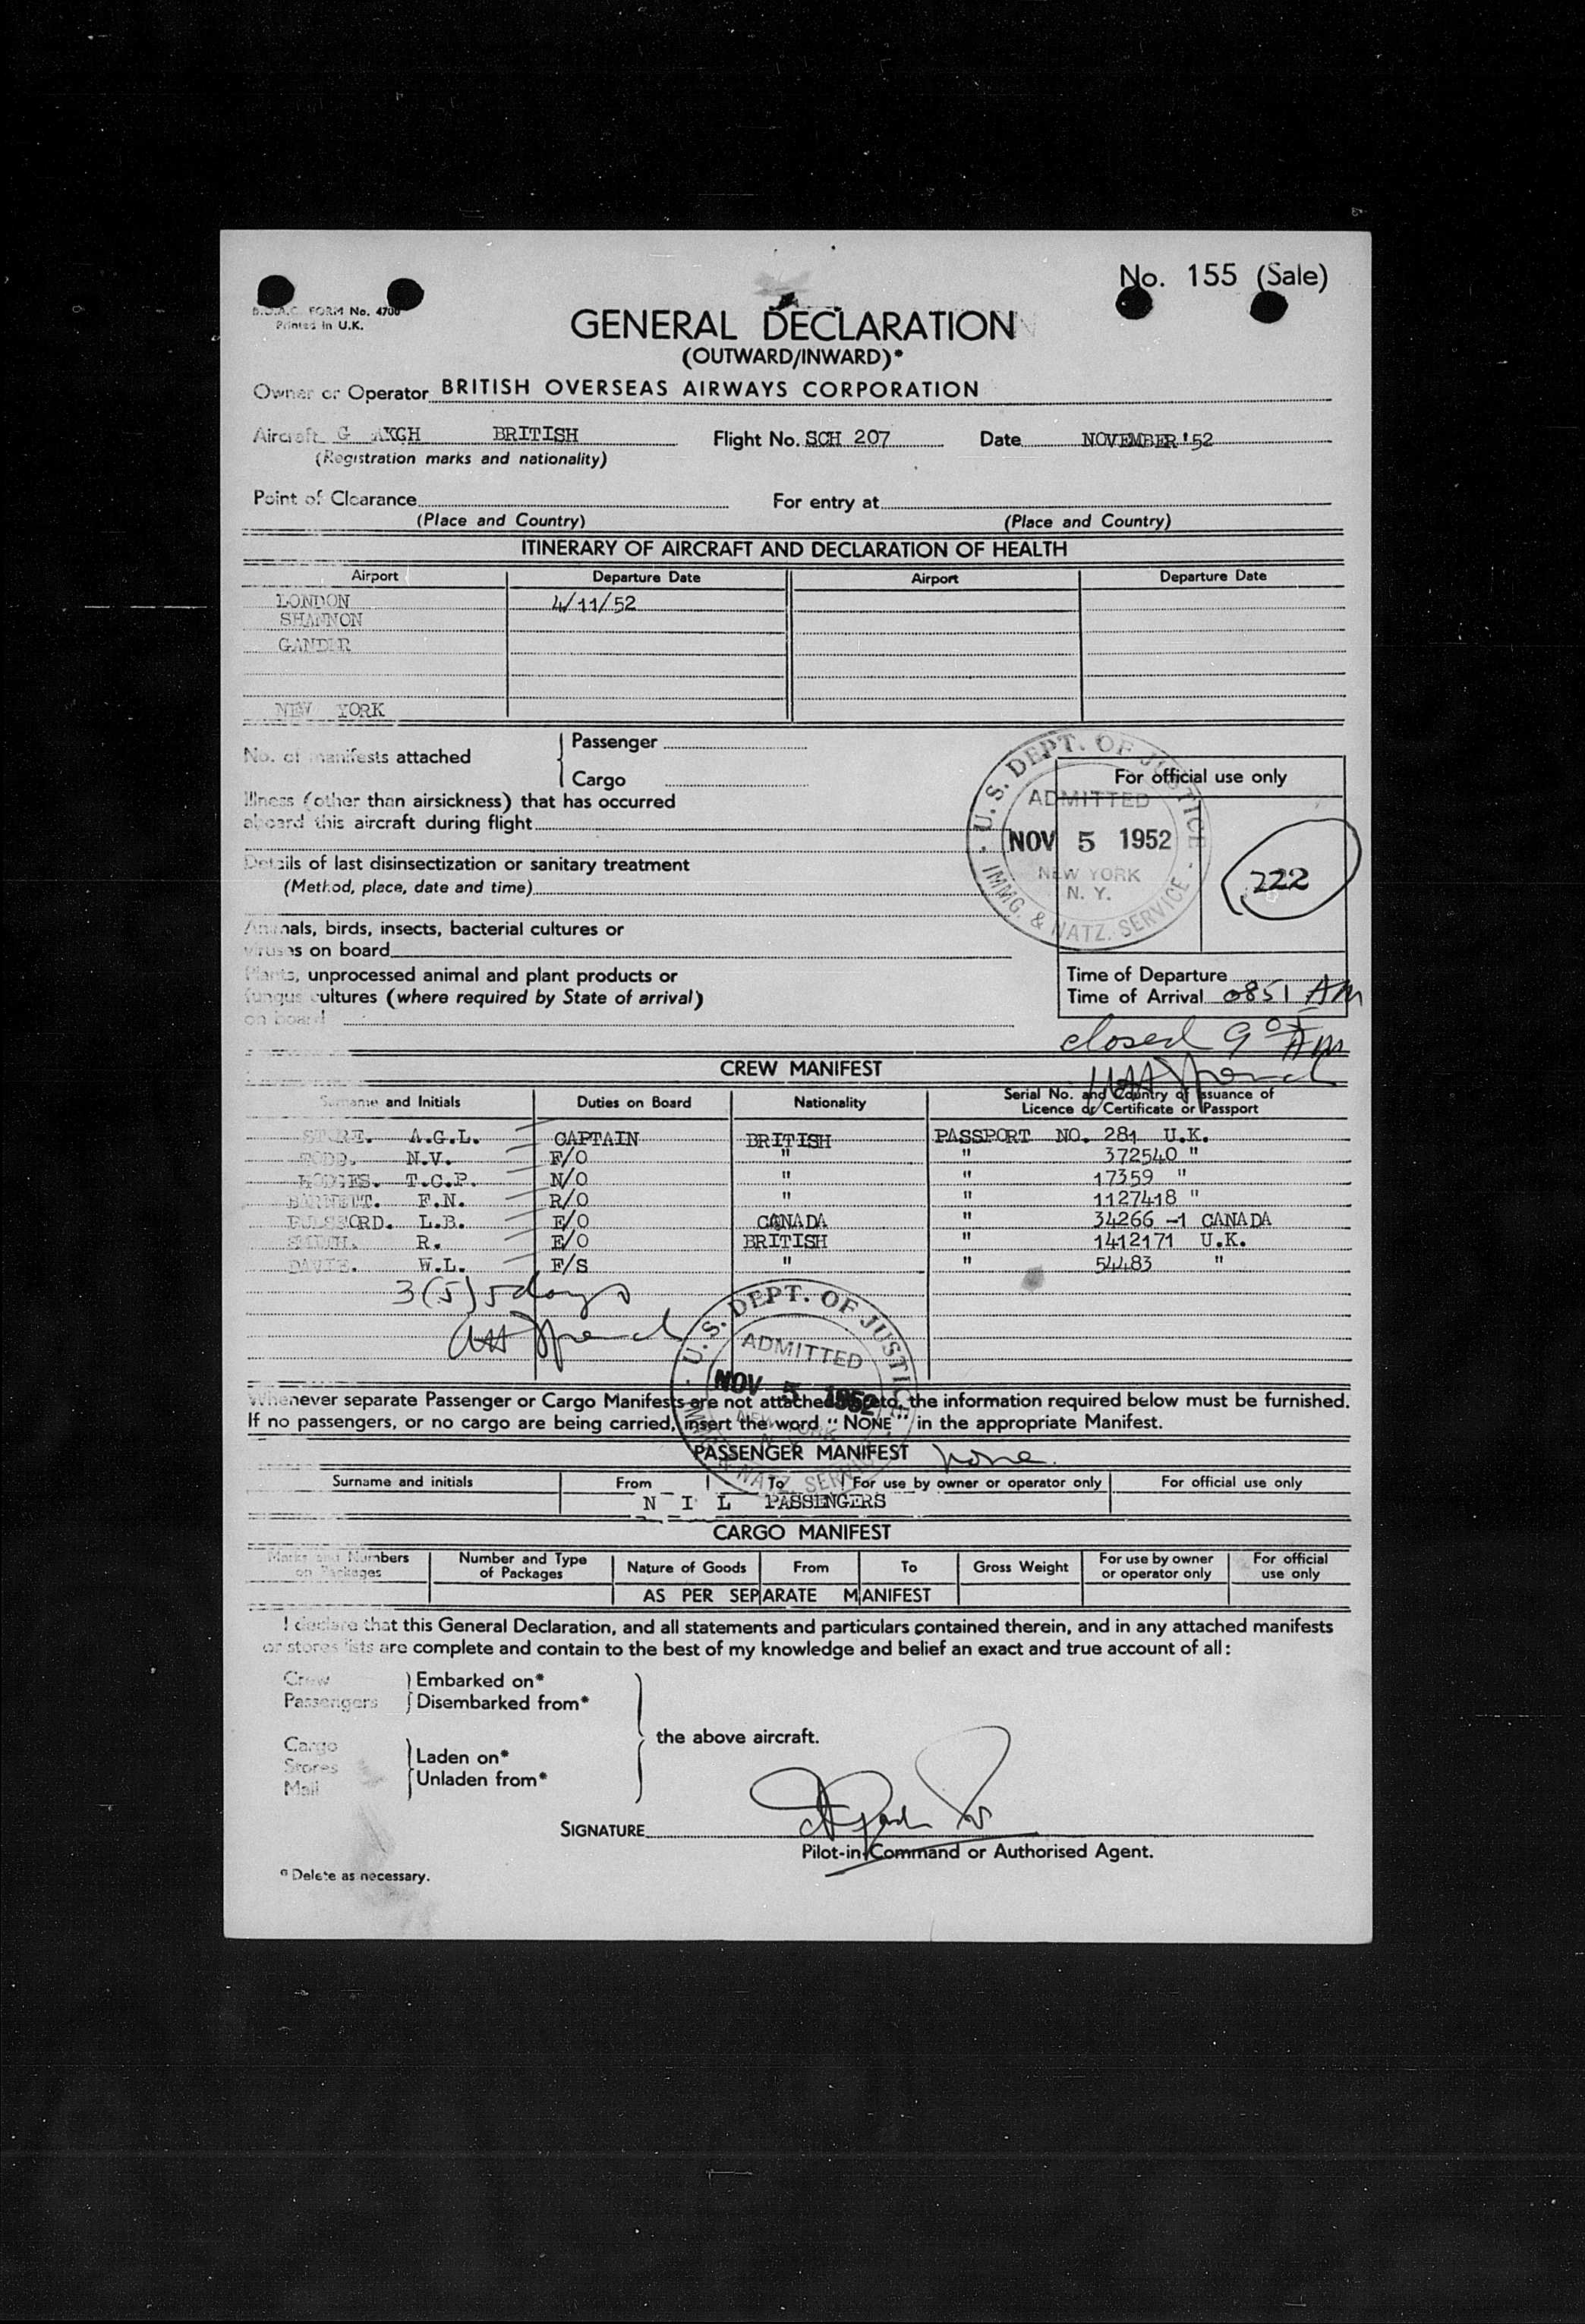 No. 155 (Sale)
B.O.A.C. FORM No. 4700
Printed in U.K.
GENERAL DECLARATION
(OUTWARD/INWARD)*
Owner or Operator BRITISH OVERSEAS AIRWAYS CORPORATION
Aircraft G AKGH BRITISH Flight No. SCH 207 Date NOVEMBER '52
(Registration marks and nationality)
Point of Clearance For entry at
(Place and Country) (Place and Country)
ITINERARY OF AIRCRAFT AND DECLARATION OF HEALTH
Airport Departure Date Airport Departure Date
LONDON 4/11/52
SHANNON
GANDER
NEW YORK
No. of manifests attached Passenger
Cargo
For official use only
U.S. DEPT. OF JUSTICE
ADMITTED
NOV 5 1952
NEW YORK
N. Y.
IMMG. & NATZ. SERVICE
222
Illness (other than airsickness) that has occurred
aboard this aircraft during flight
Details of last disinsectization or sanitary treatment
(Method, place, date and time)
Animals, birds, insects, bacterial cultures or
viruses on board
Plants, unprocessed animal and plant products or
fungus cultures (where required by State of arrival)
on board
Time of Departure
Time of Arrival 0851 AM
closed 9 AM
CREW MANIFEST
Surname and Initials Duties on Board Nationality Serial No. and Country of Issuance of
Licence or Certificate or Passport
STORE. A.G.L. CAPTAIN BRITISH PASSPORT NO. 281 U.K.
TODD. N.V. F/O " " 372540 "
HODGES. T.C.P. N/O " " 17359 "
BARNETT. F.N. R/O " " 1127418 "
PULSFORD. L.B. E/O CANADA " 34266 -1 CANADA
SMITH. R. E/O BRITISH " 1412171 U.K.
DAVIE. W.L. F/S " " 54483 "
3(5) 5 days
U.S. DEPT. OF JUSTICE
ADMITTED
NOV 5 1952
NEW YORK
NATZ. SERVICE
Whenever separate Passenger or Cargo Manifests are not attached hereto, the information required below must be furnished.
If no passengers, or no cargo are being carried, insert the word "NONE" in the appropriate Manifest.
PASSENGER MANIFEST none
Surname and initials From To For use by owner or operator only For official use only
N I L PASSENGERS
CARGO MANIFEST
Marks and Numbers on Packages Number and Type of Packages Nature of Goods From To Gross Weight For use by owner or operator only For official use only
AS PER SEPARATE MANIFEST
I declare that this General Declaration, and all statements and particulars contained therein, and in any attached manifests
or stores lists are complete and contain to the best of my knowledge and belief an exact and true account of all:
Crew Embarked on*
Passengers Disembarked from*
the above aircraft.
Cargo
Stores Laden on*
Mail Unladen from*
SIGNATURE
Pilot-in-Command or Authorised Agent.
* Delete as necessary.